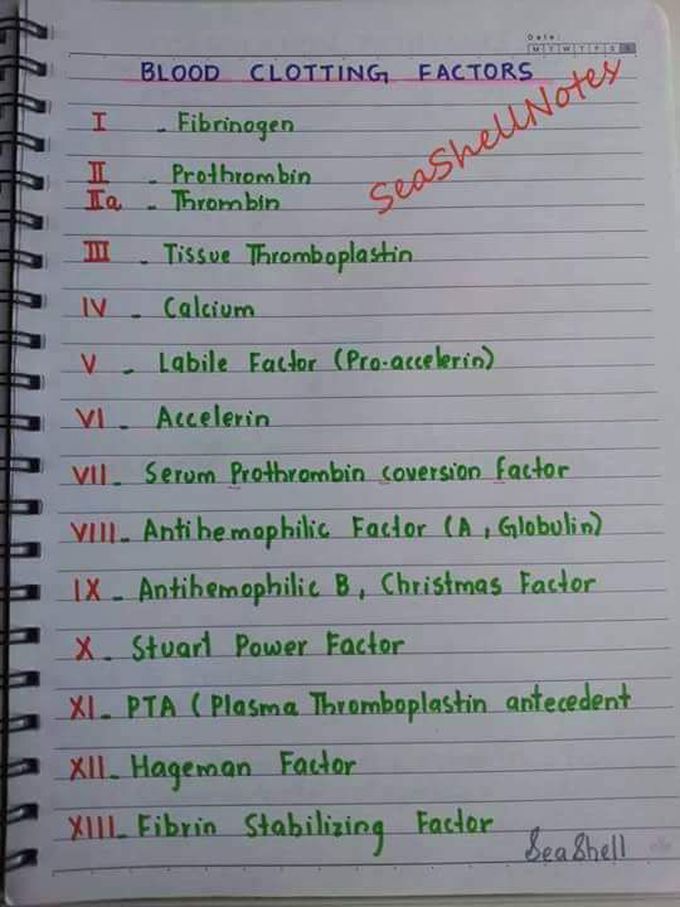 Date:
M T W T F S S
BLOOD CLOTTING FACTORS
SeaShellNotes
I - Fibrinogen
II - Prothrombin
IIa - Thrombin
III - Tissue Thromboplastin
IV - Calcium
V - Labile Factor (Pro-accelerin)
VI - Accelerin
VII - Serum Prothrombin coversion factor
VIII - Antihemophilic Factor (A, Globulin)
IX - Antihemophilic B, Christmas Factor
X - Stuart Power Factor
XI - PTA (Plasma Thromboplastin antecedent
XII - Hageman Factor
XIII - Fibrin Stabilizing Factor
SeaShell